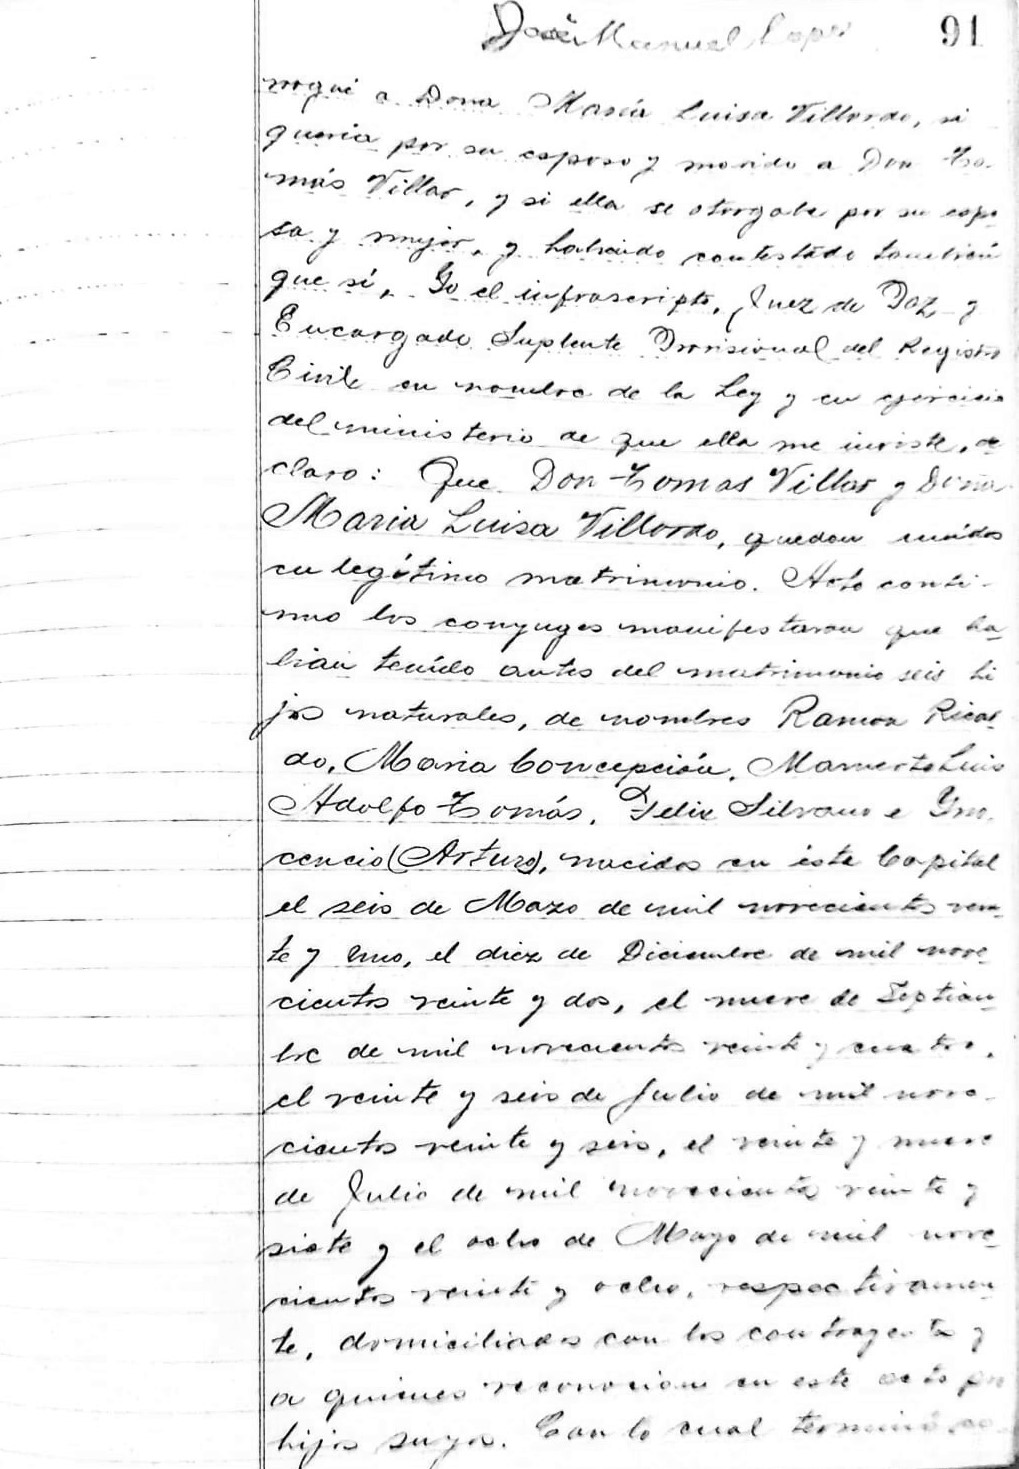 José Manuel Lopez 91
rogué a Dona María Luisa Villordo, si
queria por su esposo y marido a Don To-
más Villar, y si ella se otorgaba por su espo
sa y mujer, y habiendo contestado también
que sí, Yo el infrascripto, Juez de Paz y
Encargado Suplente Provisional del Registro
Civil en nombre de la Ley y en ejercicio
del ministerio de que ella me inviste, de
claro: Que Don Tomas Villar y Doña
Maria Luisa Villordo, quedan unidos
en legítimo matrimonio. Acto conti-
nuo los conyuges manifestaron que ha
bian tenido antes del matrimonio seis hi
jos naturales, de nombres Ramon Ricar
do, Maria Concepción, Mamerto Luis
Adolfo Tomás, Felix Silvano e Yno
cencio (Arturo), nacidos en ésta Capital
el seis de Mazo de mil novecientos vein-
te y uno, el diez de Diciembre de mil nove-
cientos veinte y dos, el nueve de Septiem-
bre de mil novecientos veinte y cuatro,
el veinte y seis de Julio de mil nove-
cientos veinte y seis, el veinte y nueve
de Julio de mil novecientos veinte y
siete y el ocho de Mayo de mil nove-
cientos veinte y ocho, respectivamen-
te, domiciliados con los contrayentes y
a quienes reconocian en este acto por
hijos suyos. Con lo cual terminó